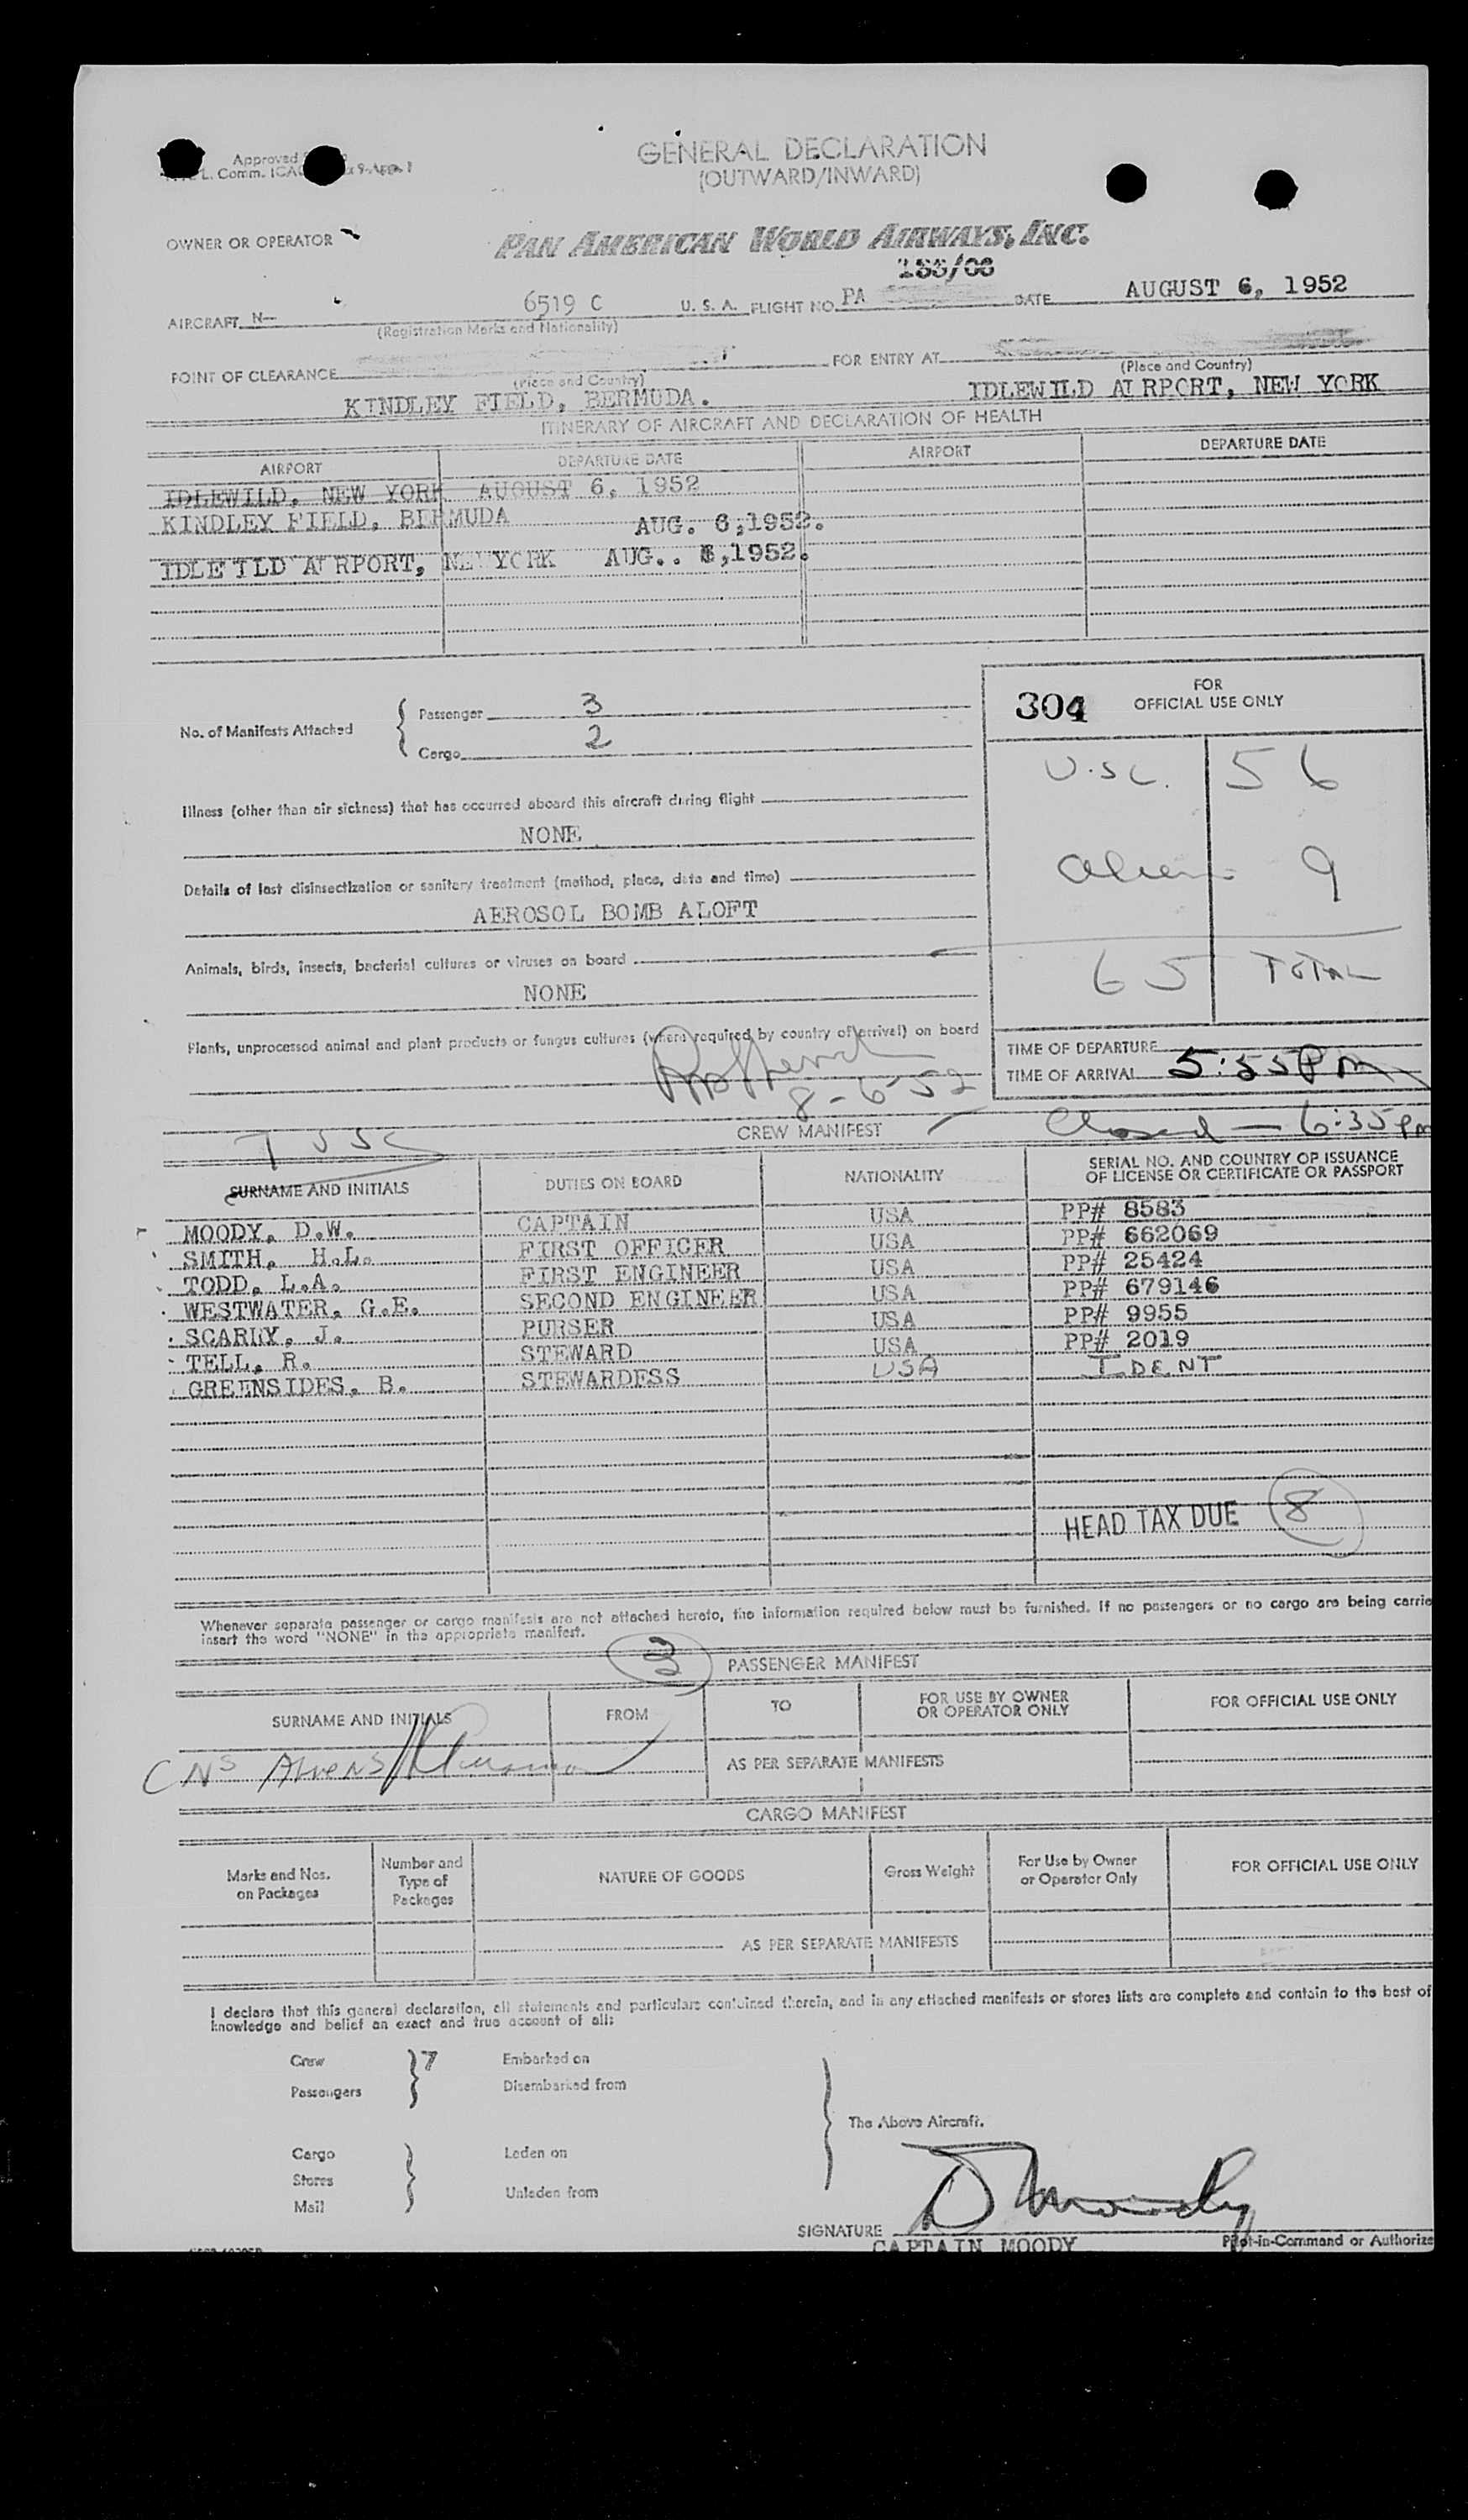 Approved
L. Comm. ICAO 9-App. 1
GENERAL DECLARATION
(OUTWARD/INWARD)
OWNER OR OPERATOR
PAN AMERICAN WORLD AIRWAYS, INC.
AIRCRAFT N- 6519 C U. S. A. FLIGHT NO. PA 153/06 DATE AUGUST 6, 1952
(Registration Marks and Nationality)
POINT OF CLEARANCE FOR ENTRY AT
(Place and Country) (Place and Country)
KINDLEY FIELD, BERMUDA. IDLEWILD AIRPORT, NEW YORK
ITINERARY OF AIRCRAFT AND DECLARATION OF HEALTH
AIRPORT DEPARTURE DATE AIRPORT DEPARTURE DATE
IDLEWILD, NEW YORK AUGUST 6, 1952
KINDLEY FIELD, BERMUDA AUG. 6,1952.
IDLE ILD AIRPORT, NE YORK AUG.. 6,1952.
No. of Manifests Attached
Passenger 3
Cargo 2
304 FOR
OFFICIAL USE ONLY
U.S.C. 56
Alien 9
65 TOTAL
Illness (other than air sickness) that has occurred aboard this aircraft during flight
NONE
Details of last disinsectization or sanitary treatment (method, place, date and time)
AEROSOL BOMB ALOFT
Animals, birds, insects, bacterial cultures or viruses on board
NONE
Plants, unprocessed animal and plant products or fungus cultures (where required by country of arrival) on board
8-6-52
TIME OF DEPARTURE
TIME OF ARRIVAL 5:55 PM
Closed — 6:35 pm
7 USC
CREW MANIFEST
SURNAME AND INITIALS DUTIES ON BOARD NATIONALITY SERIAL NO. AND COUNTRY OF ISSUANCE
OF LICENSE OR CERTIFICATE OR PASSPORT
MOODY, D.W. CAPTAIN USA PP# 8583
SMITH, H.L. FIRST OFFICER USA PP# 662069
TODD, L.A. FIRST ENGINEER USA PP# 25424
WESTWATER, G.E. SECOND ENGINEER USA PP# 679146
SCARRY, J. PURSER USA PP# 9955
TELL, R. STEWARD USA PP# 2019
GREENSIDES, B. STEWARDESS USA IDENT
HEAD TAX DUE 8
Whenever separate passenger or cargo manifests are not attached hereto, the information required below must be furnished. If no passengers or no cargo are being carrie
insert the word "NONE" in the appropriate manifest.
3
PASSENGER MANIFEST
SURNAME AND INITIALS FROM TO FOR USE BY OWNER
OR OPERATOR ONLY FOR OFFICIAL USE ONLY
AS PER SEPARATE MANIFESTS
CARGO MANIFEST
Marks and Nos.
on Packages
Number and
Type of
Packages
NATURE OF GOODS Gross Weight
For Use by Owner
or Operator Only
FOR OFFICIAL USE ONLY
AS PER SEPARATE MANIFESTS
I declare that this general declaration, all statements and particulars contained therein, and in any attached manifests or stores lists are complete and contain to the best of
knowledge and belief an exact and true account of all:
Crew 7 Embarked on
Passengers Disembarked from
The Above Aircraft.
Cargo Laden on
Stores
Mail Unladen from
SIGNATURE D Moody
CAPTAIN MOODY Pilot-in-Command or Authorize